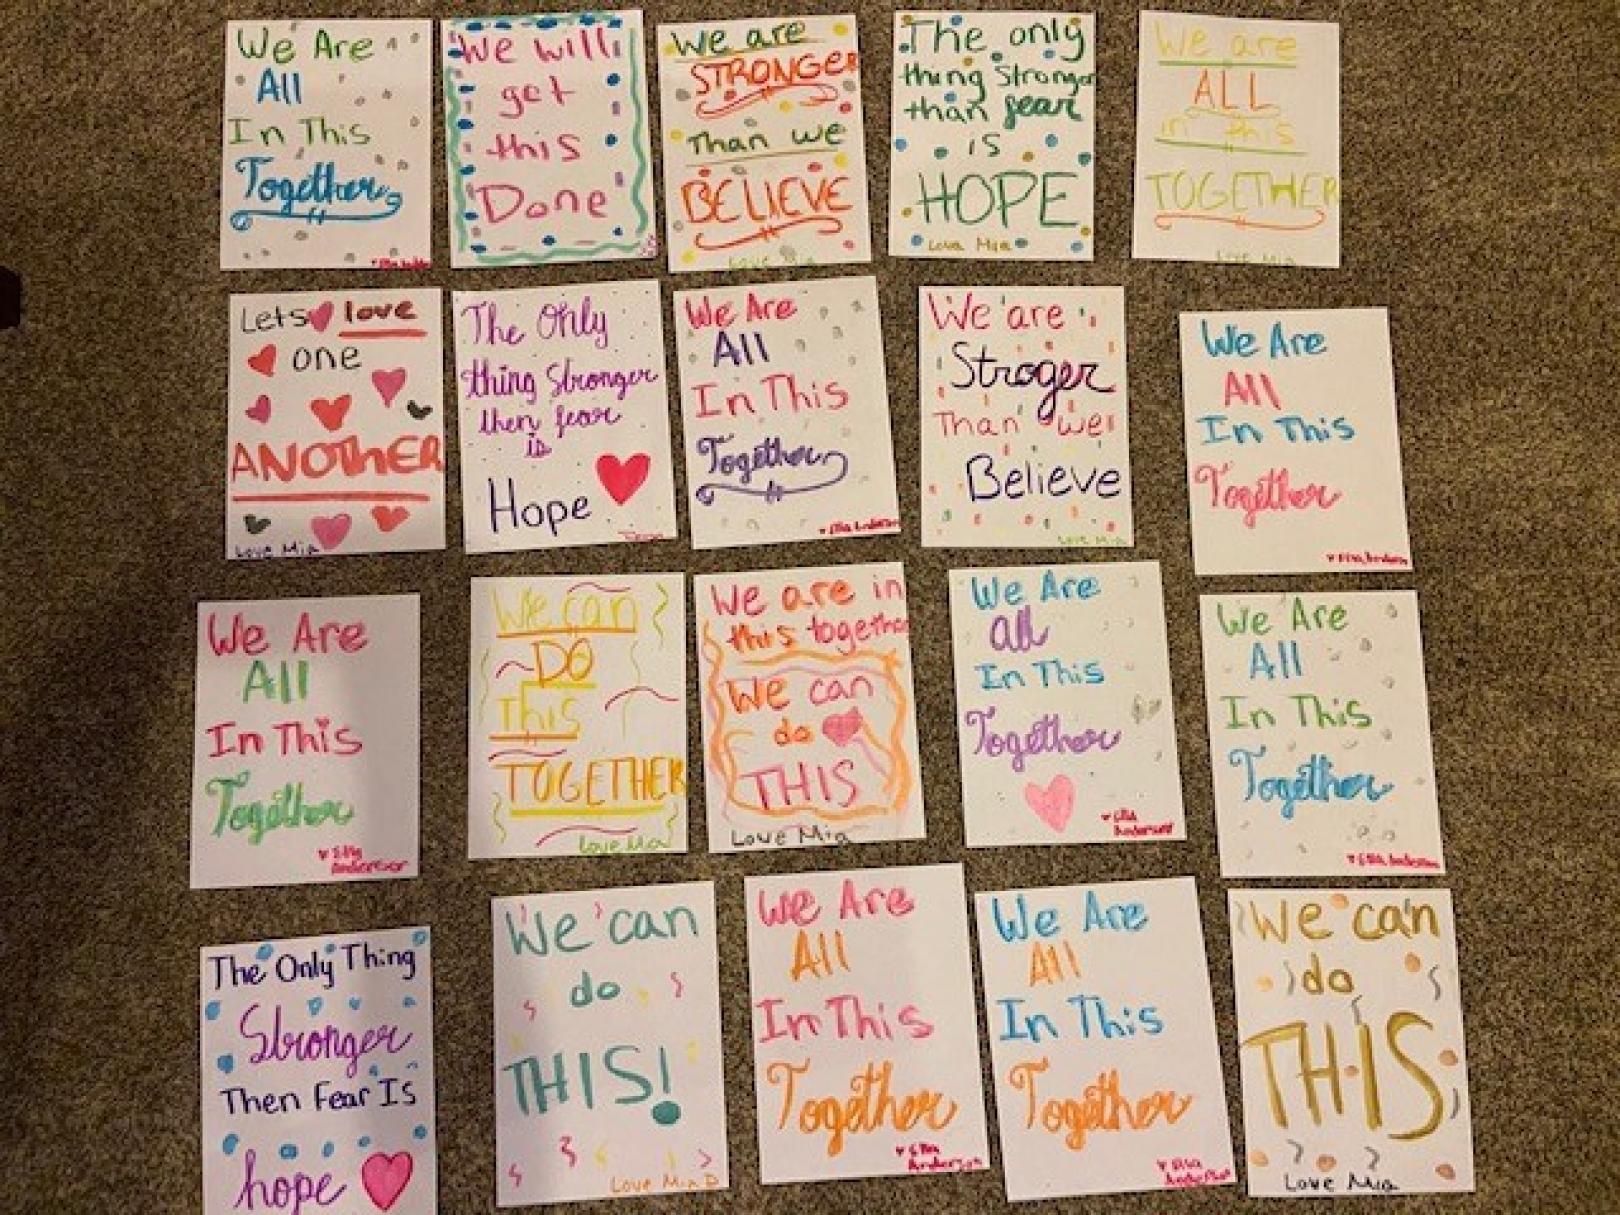 We Are
All
In This
Together
We will
get
this
Done
We are
STRONGER
Than we
BELIEVE
Love Mia
The only
thing stronger
than fear
is
HOPE
Love Mia
We are
ALL
in this
TOGETHER
Love Mia
Lets love
one
ANOTHER
Love Mia
The Only
thing Stronger
then fear
is
Hope
We Are
All
In This
Together
Ella Anderson
We are
Stroger
Than we
Believe
Love Mia
We Are
All
In This
Together
Ella Anderson
We Are
All
In This
Together
Ella
Anderson
We can
DO
This
TOGETHER
Love Mia
We are in
this together
We can
do
THIS
Love Mia
We Are
all
In This
Together
Ella
Anderson
We Are
All
In This
Together
Ella Anderson
The Only Thing
Stronger
Then Fear Is
hope
We can
do
THIS!
Love Mia D
We Are
All
In This
Together
Ella
Anderson
We Are
All
In This
Together
Ella
Anderson
We can
do
THIS
Love Mia